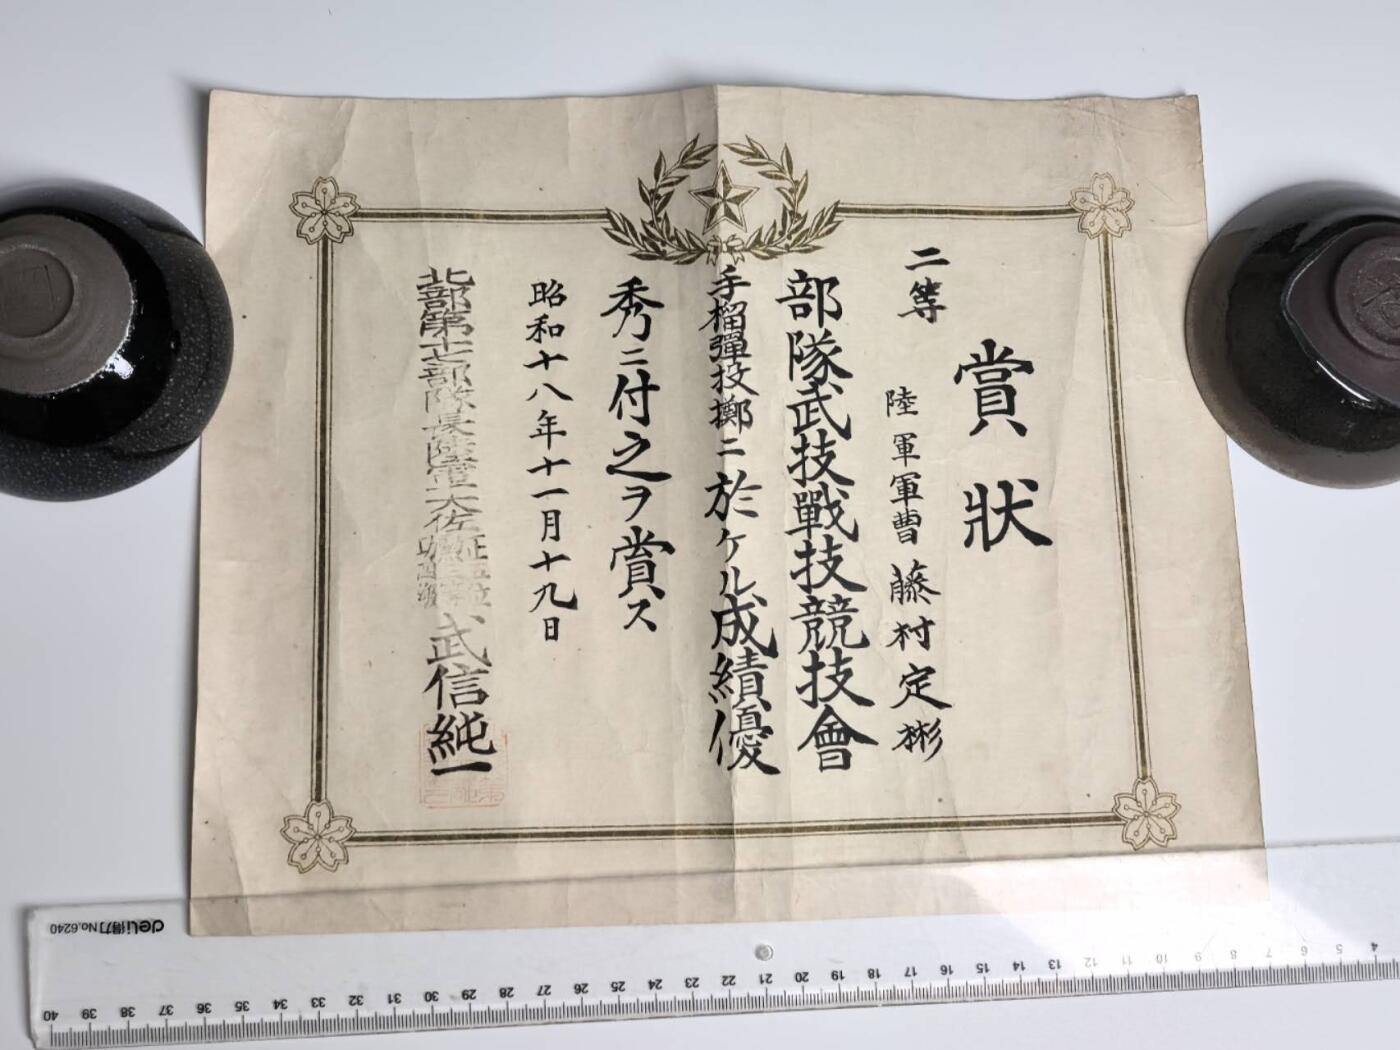 賞狀
二等
陸軍軍曹 藤村定彬
部隊武技戰技競技會
手榴彈投擲ニ於ケル成績優
秀ニ付之ヲ賞ス
昭和十八年十一月十九日
北部第十七部隊長陸軍大佐 武信純一
deli得力 No.6240
40 39 38 37 36 35 34 33 32 31 30 29 28 27 26 25 24 23 22 21 20 19 18 17 16 15 14 13 12 11 10 9 8 7 6 5 4